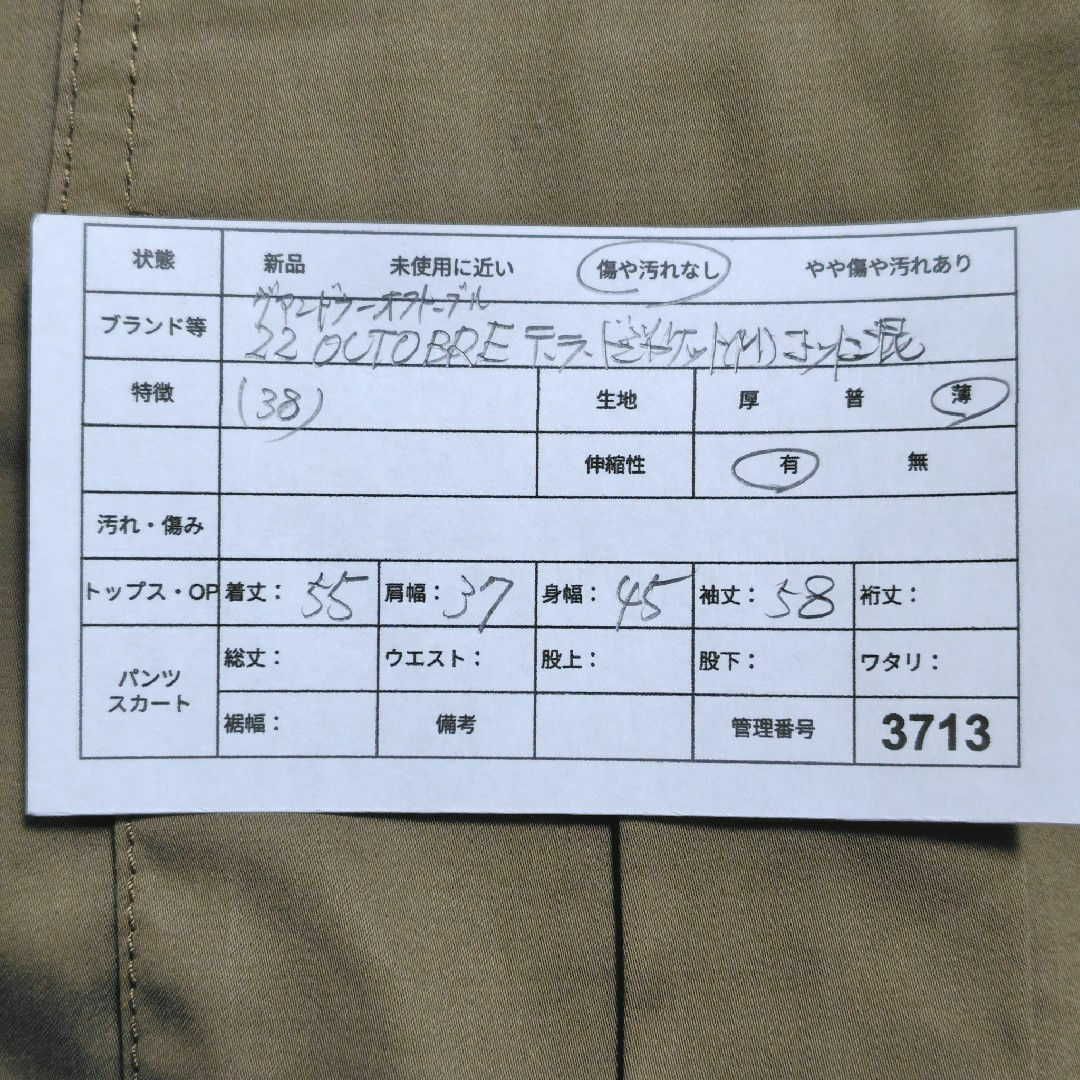 状態 新品 未使用に近い 傷や汚れなし やや傷や汚れあり
ヴァンドゥーオクトーブル
ブランド等 22 OCTOBRE テーラードジャケット(M) コットン混
特徴 (38) 生地 厚 普 薄
伸縮性 有 無
汚れ・傷み
トップス・OP 着丈: 55 肩幅: 37 身幅: 45 袖丈: 58 裄丈:
パンツ スカート 総丈: ウエスト: 股上: 股下: ワタリ:
裾幅: 備考 管理番号 3713